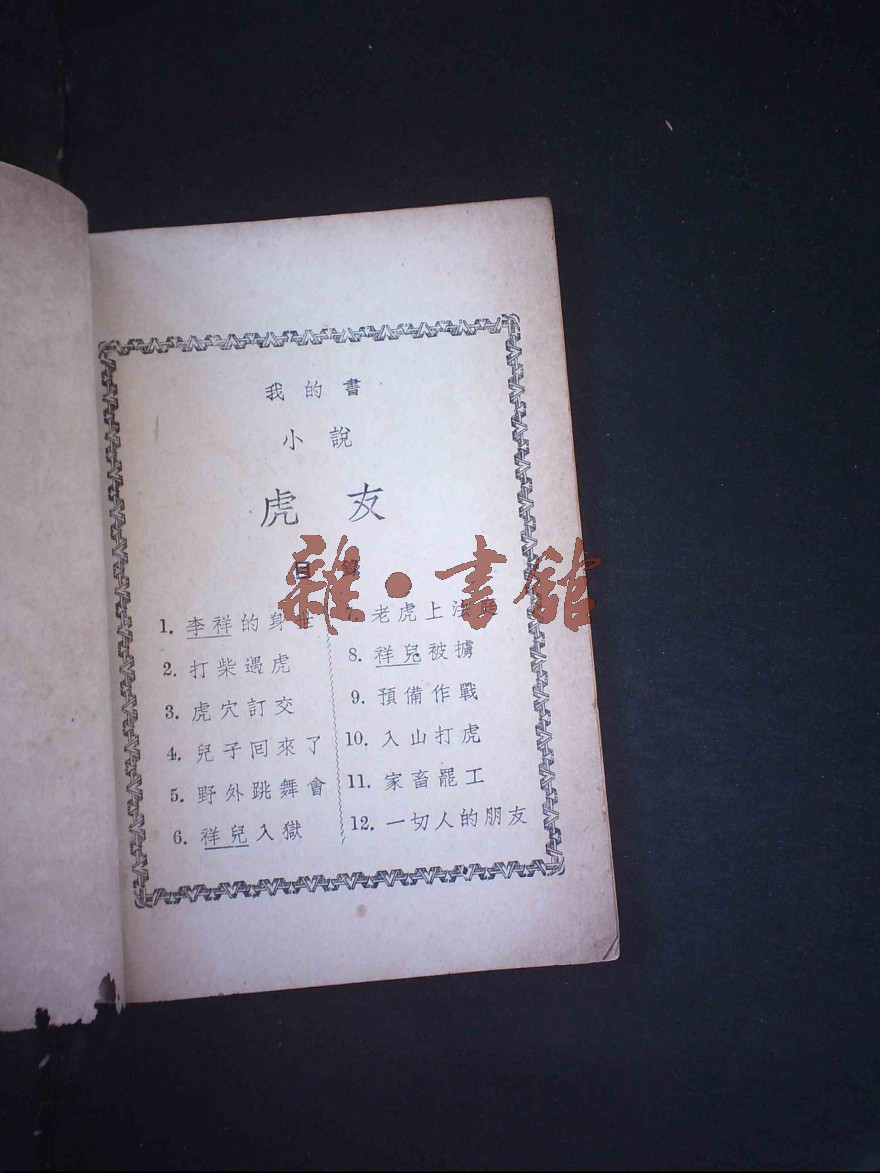 我的書
小說
虎友
目錄
雜·書館
1. 李祥的身世
2. 打柴遇虎
3. 虎穴訂交
4. 兒子回來了
5. 野外跳舞會
6. 祥兒入獄
老虎上法庭
8. 祥兒被擄
9. 預備作戰
10. 入山打虎
11. 家畜罷工
12. 一切人的朋友